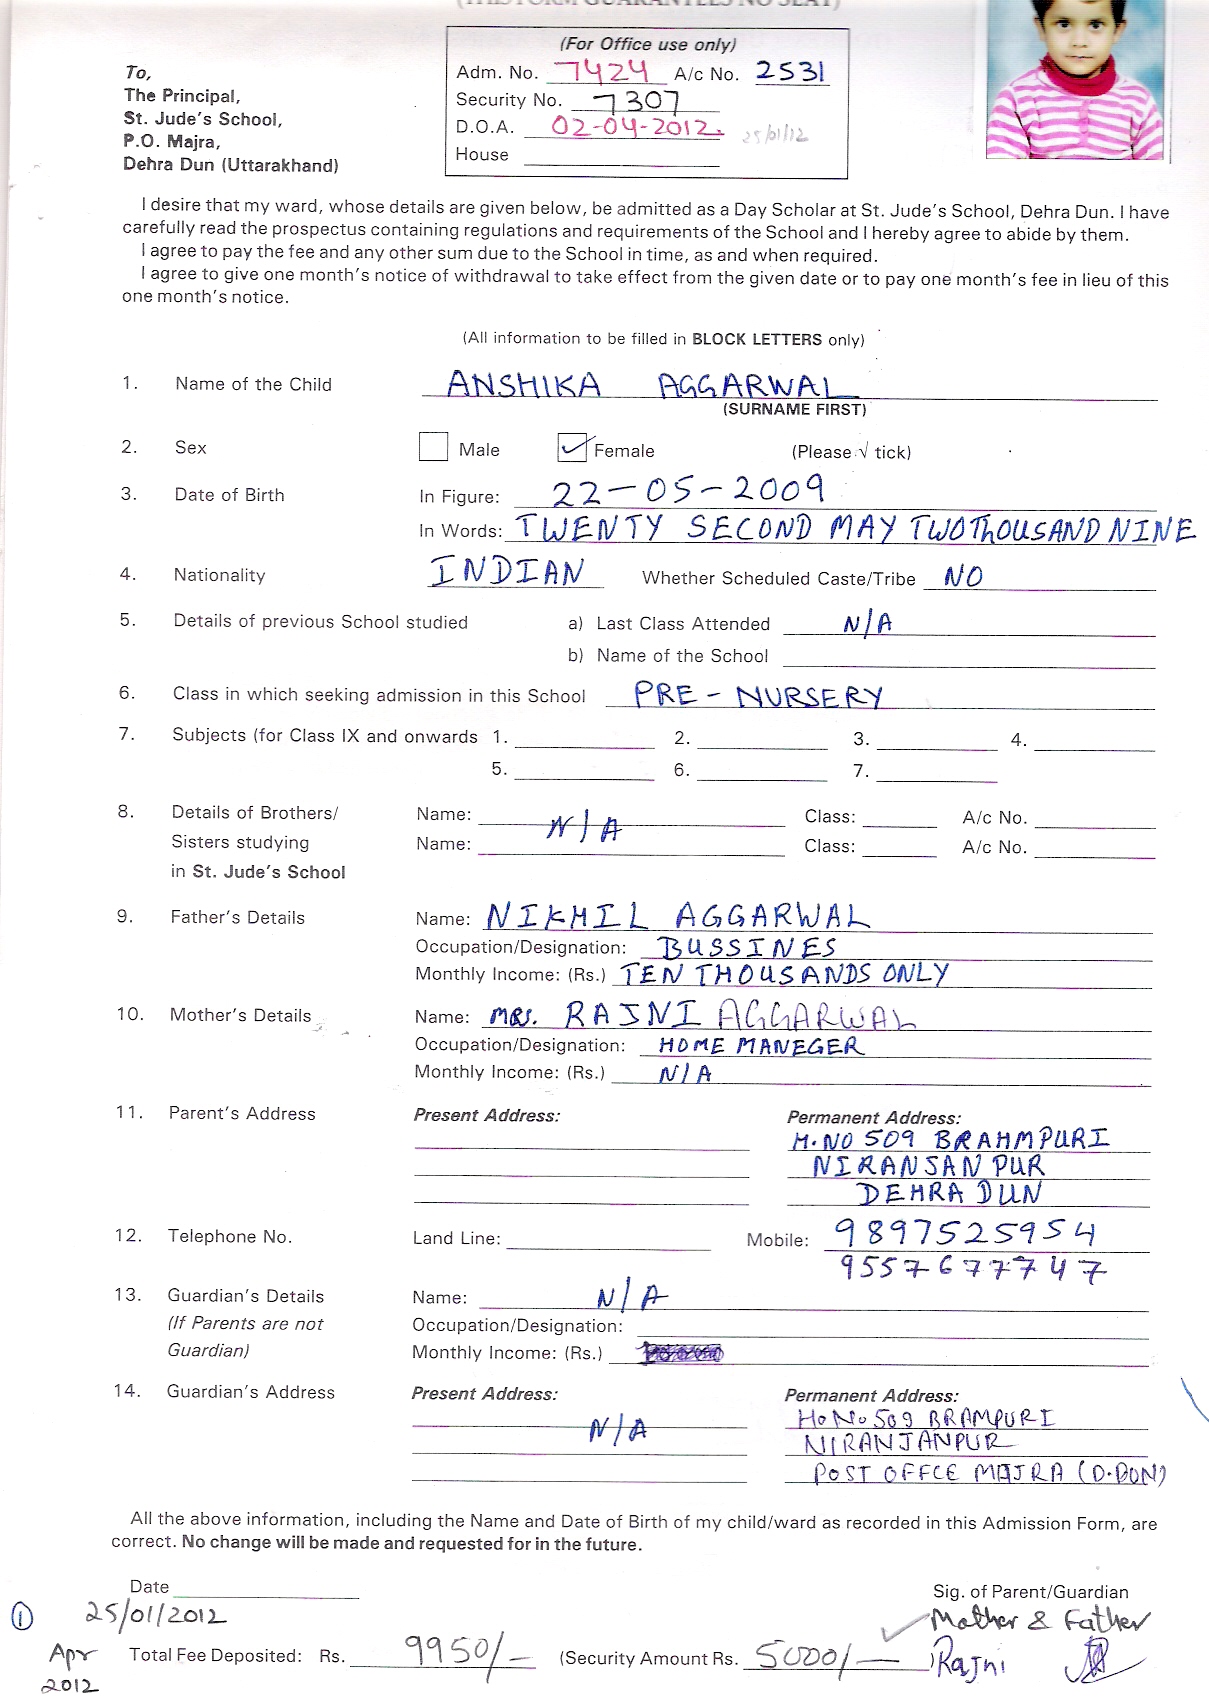 (THIS FORM GUARANTEES NO SEAT)
(For Office use only)
Adm. No. 7424 A/c No. 2531
Security No. 7307
D.O.A. 02-04-2012. 25/01/12
House
To,
The Principal,
St. Jude's School,
P.O. Majra,
Dehra Dun (Uttarakhand)
I desire that my ward, whose details are given below, be admitted as a Day Scholar at St. Jude's School, Dehra Dun. I have
carefully read the prospectus containing regulations and requirements of the School and I hereby agree to abide by them.
I agree to pay the fee and any other sum due to the School in time, as and when required.
I agree to give one month's notice of withdrawal to take effect from the given date or to pay one month's fee in lieu of this
one month's notice.
(All information to be filled in BLOCK LETTERS only)
1. Name of the Child ANSHIKA AGGARWAL
(SURNAME FIRST)
2. Sex Male ✓ Female (Please √ tick)
3. Date of Birth In Figure: 22-05-2009
In Words: TWENTY SECOND MAY TWO THOUSAND NINE
4. Nationality INDIAN Whether Scheduled Caste/Tribe NO
5. Details of previous School studied a) Last Class Attended N/A
b) Name of the School
6. Class in which seeking admission in this School PRE-NURSERY
7. Subjects (for Class IX and onwards 1. 2. 3. 4.
5. 6. 7.
8. Details of Brothers/ Name: N/A Class: A/c No.
Sisters studying Name: Class: A/c No.
in St. Jude's School
9. Father's Details Name: NIKHIL AGGARWAL
Occupation/Designation: BUSSINES
Monthly Income: (Rs.) TEN THOUSANDS ONLY
10. Mother's Details Name: MRS. RAJNI AGGARWAL
Occupation/Designation: HOME MANEGER
Monthly Income: (Rs.) N/A
11. Parent's Address Present Address: Permanent Address:
H.NO 509 BRAHMPURI
NIRANJAN PUR
DEHRA DUN
12. Telephone No. Land Line: Mobile: 9897525954
9557677747
13. Guardian's Details Name: N/A
(If Parents are not Occupation/Designation:
Guardian) Monthly Income: (Rs.)
14. Guardian's Address Present Address: Permanent Address:
N/A HO NO 509 BRAMPURI
NIRANJANPUR
POST OFFCE MAJRA (D.DUN)
All the above information, including the Name and Date of Birth of my child/ward as recorded in this Admission Form, are
correct. No change will be made and requested for in the future.
Date Sig. of Parent/Guardian
① 25/01/2012 Mother & Father
Apr Total Fee Deposited: Rs. 9950/- (Security Amount Rs. 5000/-) Rajni
2012